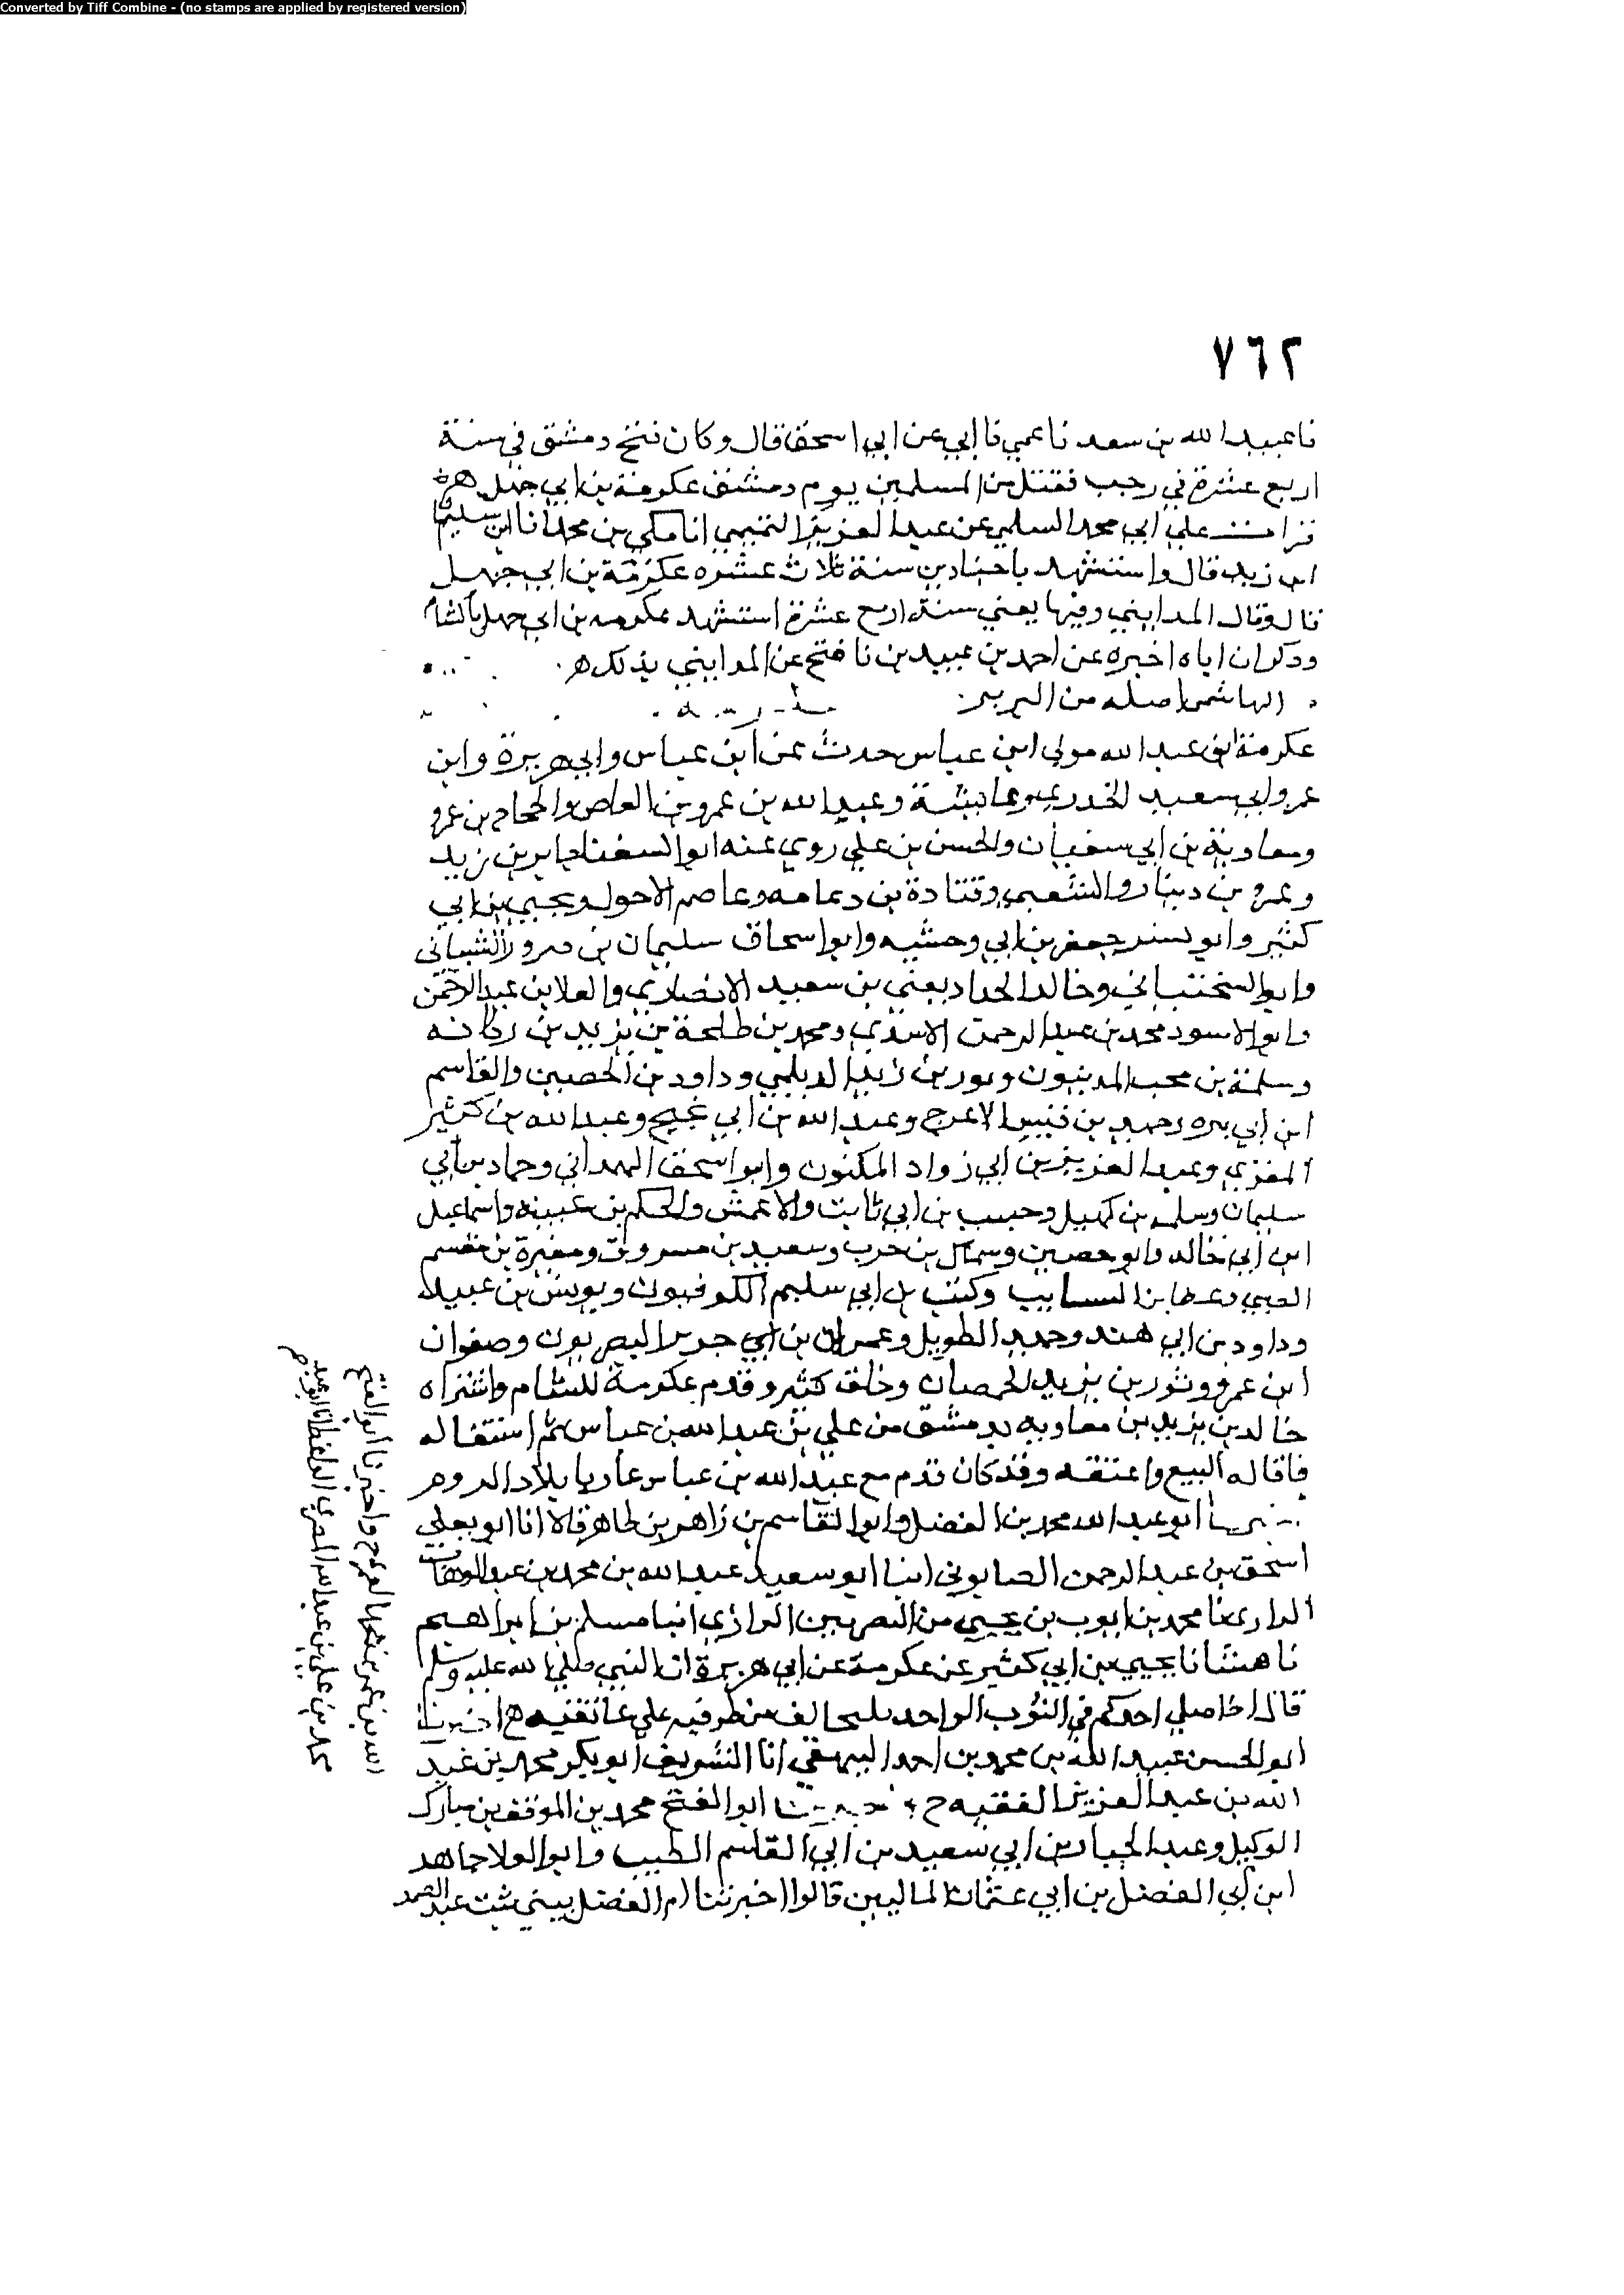 Converted by Tiff Combine - (no stamps are applied by registered version)
٧٦٢
نا عبيد الله بن سعد نا عمي نا ابي عن ابي اسحق قال وكان فتح دمشق في سنة
اربع عشرة في رجب فقتل من المسلمين يوم دمشق عكرمة بن ابي جهل هـ
قرات على ابي محمد السلمي عن عبد العزيز التميمي انا مكي بن محمد انا ابو سليمان
ابن زبر قال واستشهد باجنادين سنة ثلاث عشره عكرمة بن ابي جهل
قال وقال المدايني وفيها يعني سنة اربع عشرة استشهد عكرمه بن ابي جهل بالشام
وذكر ان اباه اخبره عن احمد بن عبيد بن نافع عن المدايني بذلك هـ
الهاشمي اصله من البربر
عكرمة ابو عبد الله مولى ابن عباس حدث عن ابن عباس وابي هريرة وابن
عمر وابي سعيد الخدري وعائشة وعبد الله بن عمرو بن العاص والحجاج بن عمرو
ومعاوية بن ابي سفيان والحسن بن علي روى عنه ابو الشعثا جابر بن زيد
وعمرو بن دينار والشعبي وقتادة بن دعامه وعاصم الاحول ويحيى بن ابي
كثير وابو بشر جعفر بن ابي وحشيه وابو اسحاق سليمان بن فيروز الشيباني
وايوب السختياني وخالد الحذاء يعني بن سعيد الانصاري والعلا بن عبد الرحمن
وابو الاسود محمد بن عبد الرحمن الاسدي ومحمد بن طلحة بن يزيد بن ركانه
وسلمة بن محب المدينيون وثور بن زيد الديلي وداود بن الحصين والقاسم
ابن ابي بزه وحميد بن قيس الاعرج وعبد الله بن ابي نجيح وعبد الله بن كثير
المقري وعبد العزيز بن ابي رواد المكيون وابو اسحق الهمداني وحماد بن ابي
سليمان وسلمه بن كهيل وحبيب بن ابي ثابت والاعمش والحكم بن عيينه واسماعيل
ابن ابي خالد وابو حصين وسماك بن حرب وسعيد بن مسروق ومغيرة بن مقسم
الضبي وعطا بن السايب وليث بن ابي سليم الكوفيون ويونس بن عبيد
وداود بن ابي هند وحميد الطويل وعمران بن ابي حدير البصريون وصفوان
ابن عمرو وثور بن يزيد الحمصيان وخلق كثير وقدم عكرمة للشام واشتراه
خالد بن يزيد بن معاويه بدمشق من علي بن عبد الله بن عباس ثم استقاله
فاقاله البيع واعتقه وقد كان قدم مع عبد الله بن عباس غازيا بلاد الروم
اخبرنا ابو عبد الله محمد بن الفضل وابو القاسم بن زاهر بن طاهر قالا انا ابو يعلى
اسحق بن عبد الرحمن الصابوني انبا ابو سعيد عبد الله بن محمد بن عبد الوهاب
الرازي نا محمد بن ايوب بن يحيى من الضريس الرازي انبا مسلم بن ابراهيم
نا هشام نا يحيى بن ابي كثير عن عكرمة عن ابي هريرة ان النبي صلى الله عليه وسلم
قال اذا صلى احدكم في الثوب الواحد فليخالف من طرفيه على عاتقيه هـ اخبرنا
ابو الحسن عبيد الله بن محمد بن احمد البيهقي انا الشريف ابو بكر محمد بن عبد
الله بن عبد العزيز الفقيه ح واخبرنا ابو الفتح محمد بن الموفق بن مبارك
الوكيل وعبد الجبار بن ابي سعيد بن ابي القاسم الطبيب وابو العلا صاهد
ابن ابي الفضل بن ابي عثمان المالينيون قالوا اخبرتنا ام الفضل بيبي بنت عبد الصمد
الله بن عمر بن محمد العمري ح واخبرنا ابو الفتح
محمد بن علي بن عبد الله المصري الواعظ انا ابو عبد